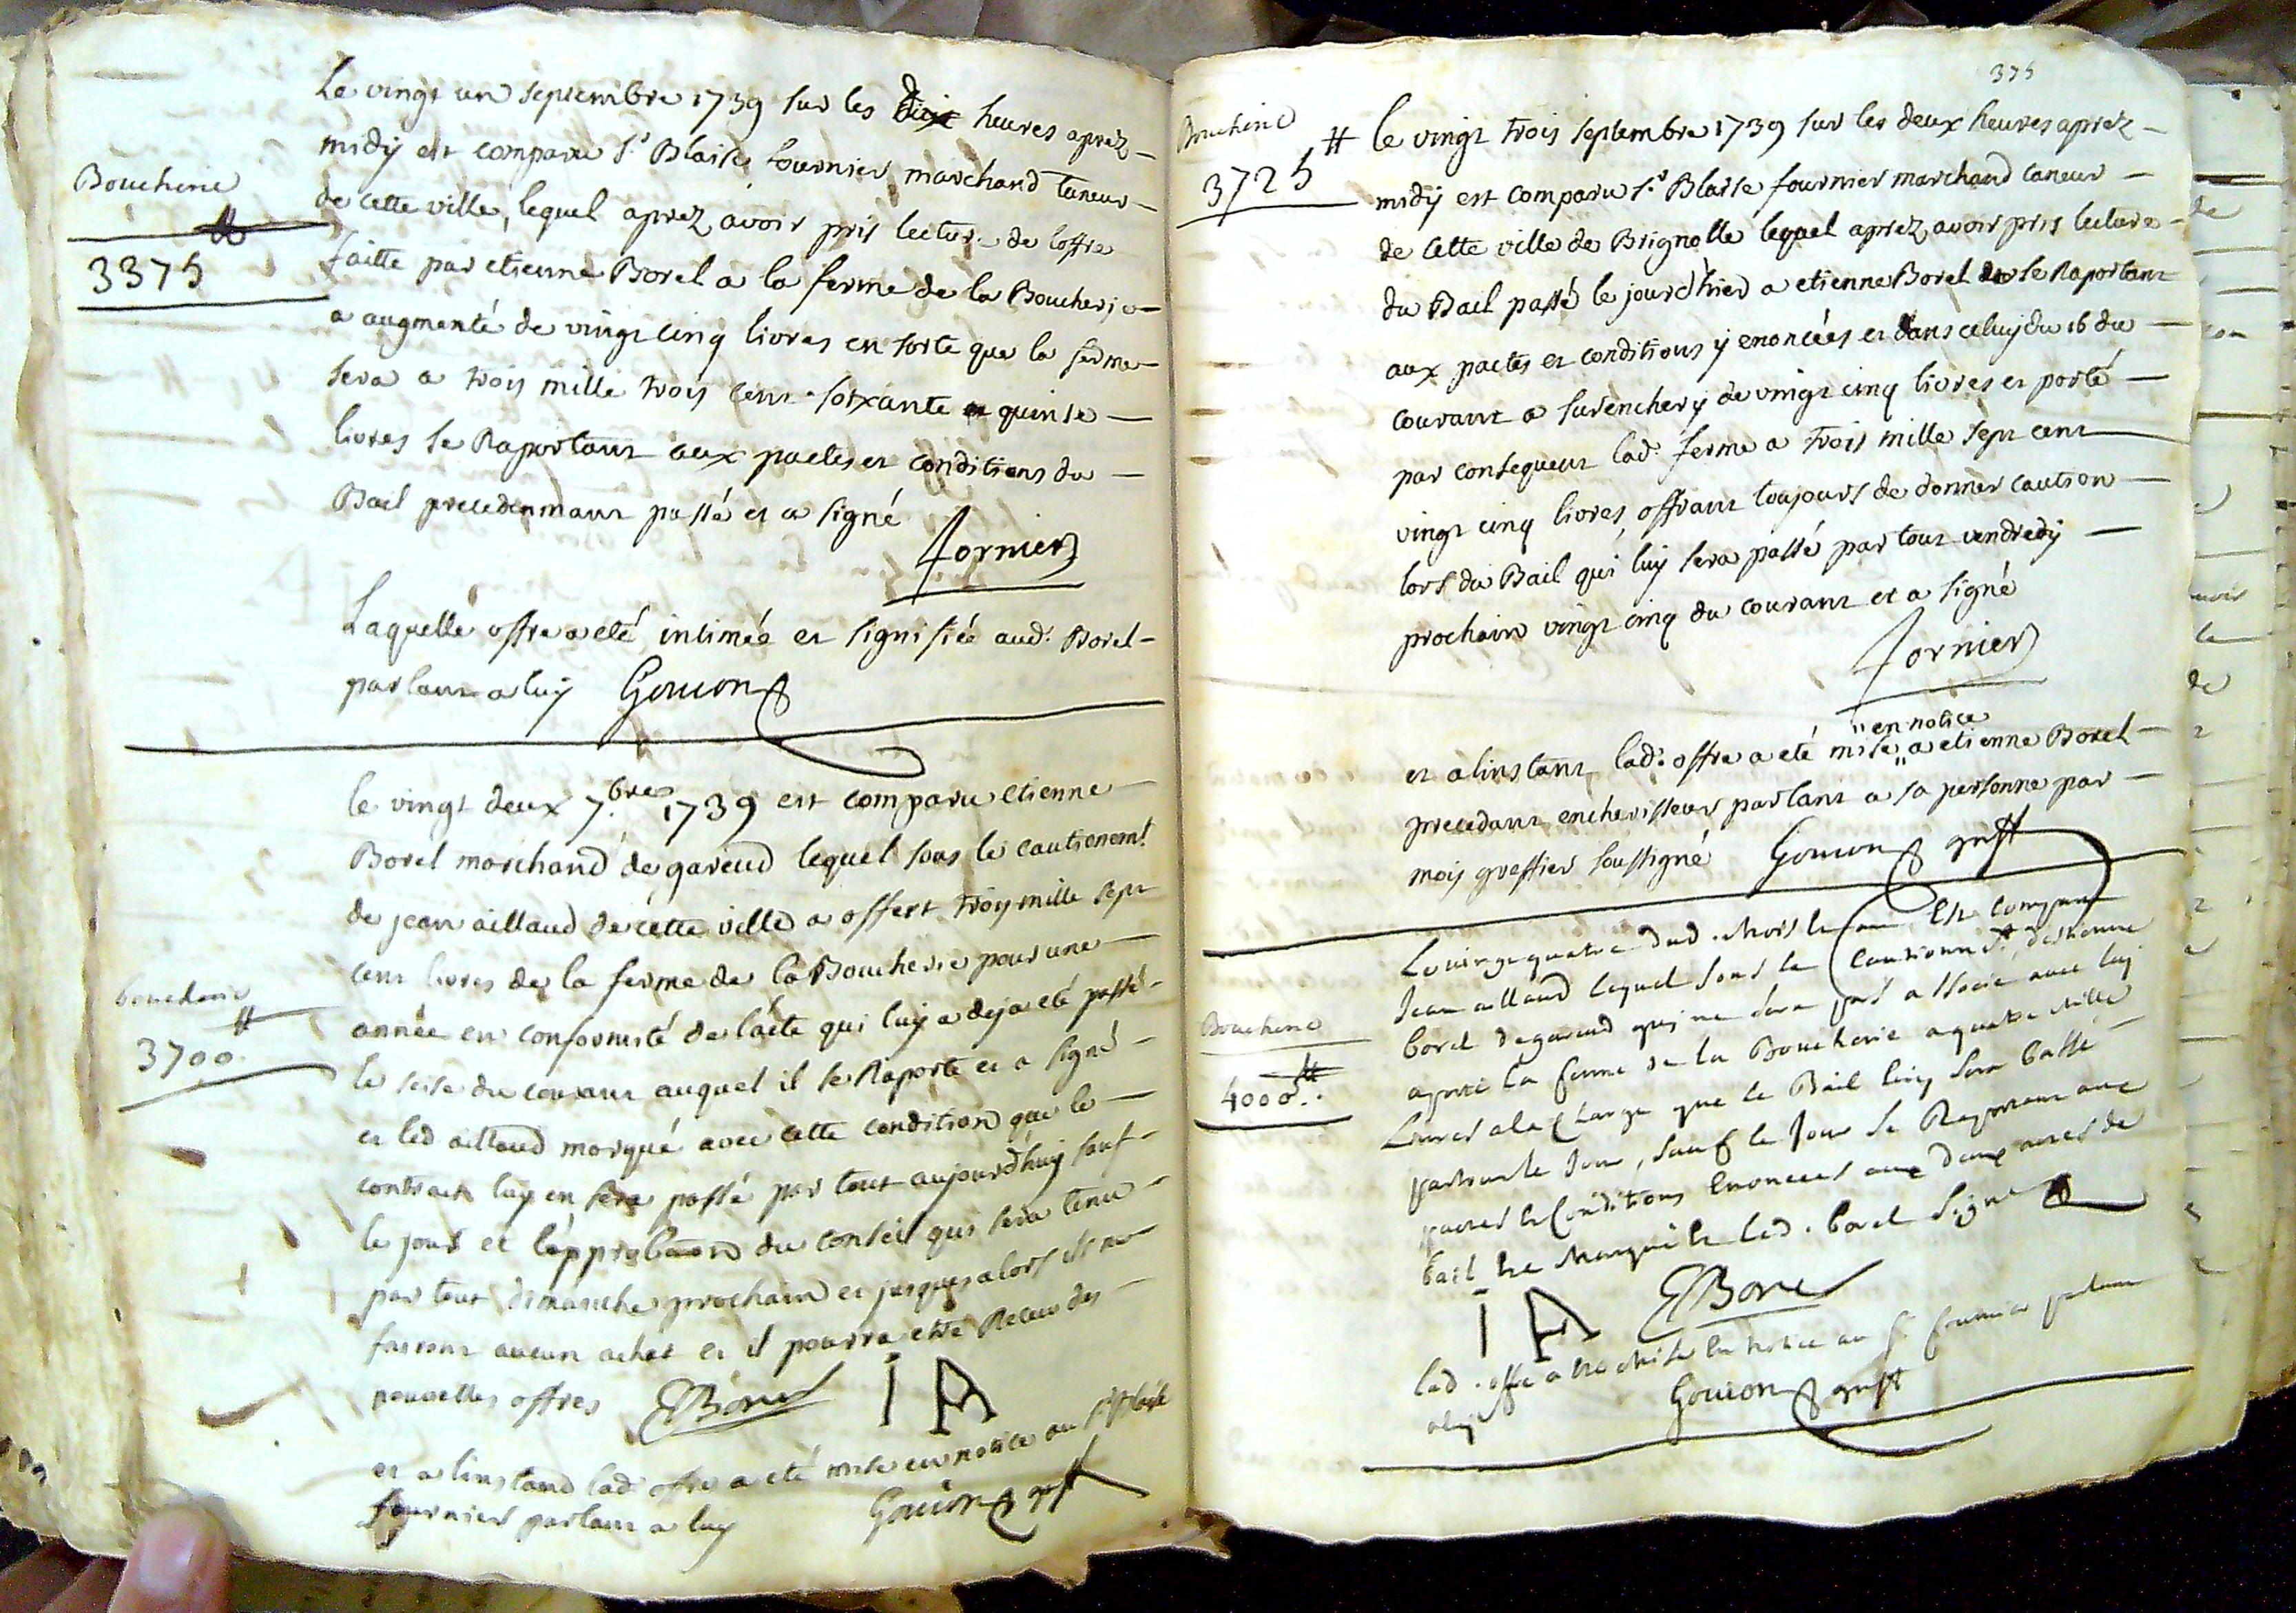 Le vingt un septembre 1739 sur les heures aprez
midÿ est comparu Sr Blaise fournier marchand taneur
de cette ville, lequel aprez avoir pris lecture de loffre
Boucherie
3375
faitte par etienne Borel a la ferme de la Boucherie
a augmenté de vingt cinq livres en sorte que la ferme
sera a trois mille trois cent soixante quinse
livres se Raportant aux pactes et conditions du
Bail precedenmant passé et a signé
fornier
Laquelle offre a eté intimée et signifiée aud. Borel
parlant a luy Gouion
le vingt deux 7.bre 1739 est comparu etienne
Borel marchand de gareud lequel sous le cautionemt
de jean aillaud de cette ville a offert trois mille sept
cent livres de la ferme de la Boucherie pour une
boucherie
3700
année en conformité de lacte qui luy a deja eté passé
le seise du courant auquel il se Raporte et a signé
et led aillaud marqué avec cette condition que le
contract luy en sera passé par tout aujourdhuy sauf
le jour et lapprobation du conseil qui sera tenu
par tout dimanche prochain et jusques alors ils ne
fairont aucun achet et il pourra etre Receu des
nouvelles offres EBorel I A
et a linstand lad. offre a eté mise en notice au Sr Blaise
fournier parlant a luy Gouion greff
375
Boucherie
3725
le vingt trois septembre 1739 sur les deux heures aprez
midÿ est comparu Sr Blaise fournier marchand taneur
de cette ville de Brignolle lequel aprez avoir pris lecture
du Bail passé le jourdhier a etienne Borel se Raportant
aux pactes et conditions ÿ enoncées et dans celuy du 16 du
courant a surenchery de vingt cinq livres et porté
par consequent lad. ferme a trois mille sept cent
vingt cinq livres, offrant toujours de donner caution
lors du Bail qui luy sera passé par tout vendredÿ
prochain vingt cinq du courant et a signé
fornier
et a linstant lad. offre a eté mise "en notice" a etienne Borel
precedant encherisseur parlant a sa personne par
moy greffier soussigné Gouion greff
Le vingt quatre dud. Mois Est comparu
Jean aillaud lequel sous le Cautionnet. destienne
borel degareud qui ne sera pas associe avec luy
Boucherie
4000
a porté la ferme de la Boucherie a quatre Mille
Livres a la Charge que le Bail luy sera passé
par tout le Jour, sauf le Jour se Raportant aux
pactes et Conditions Enoncees aux deux actes de
bail et a Marqué et led. borel Signé
I A EBorel
lad. offre a ete Mise En Notice au Sr fournier parlant
a luy Gouion greff